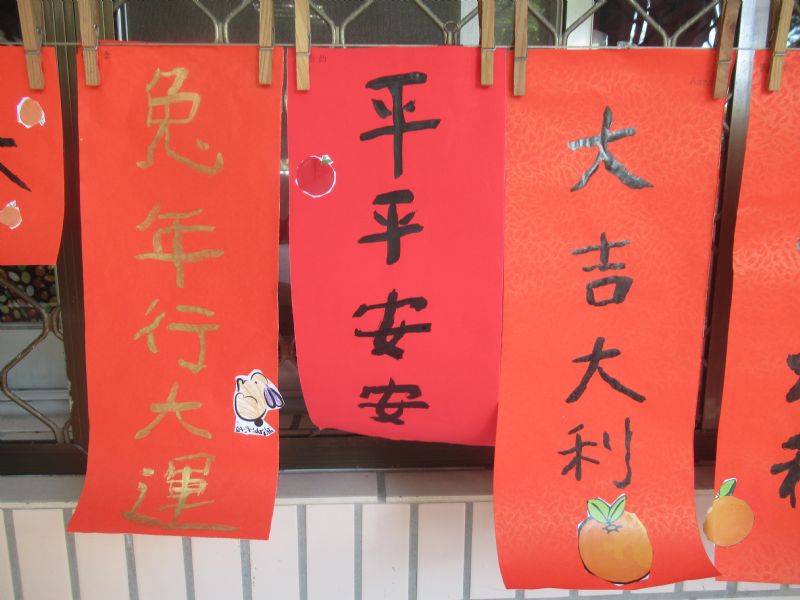 兔年行大運
平平安安
大吉大利